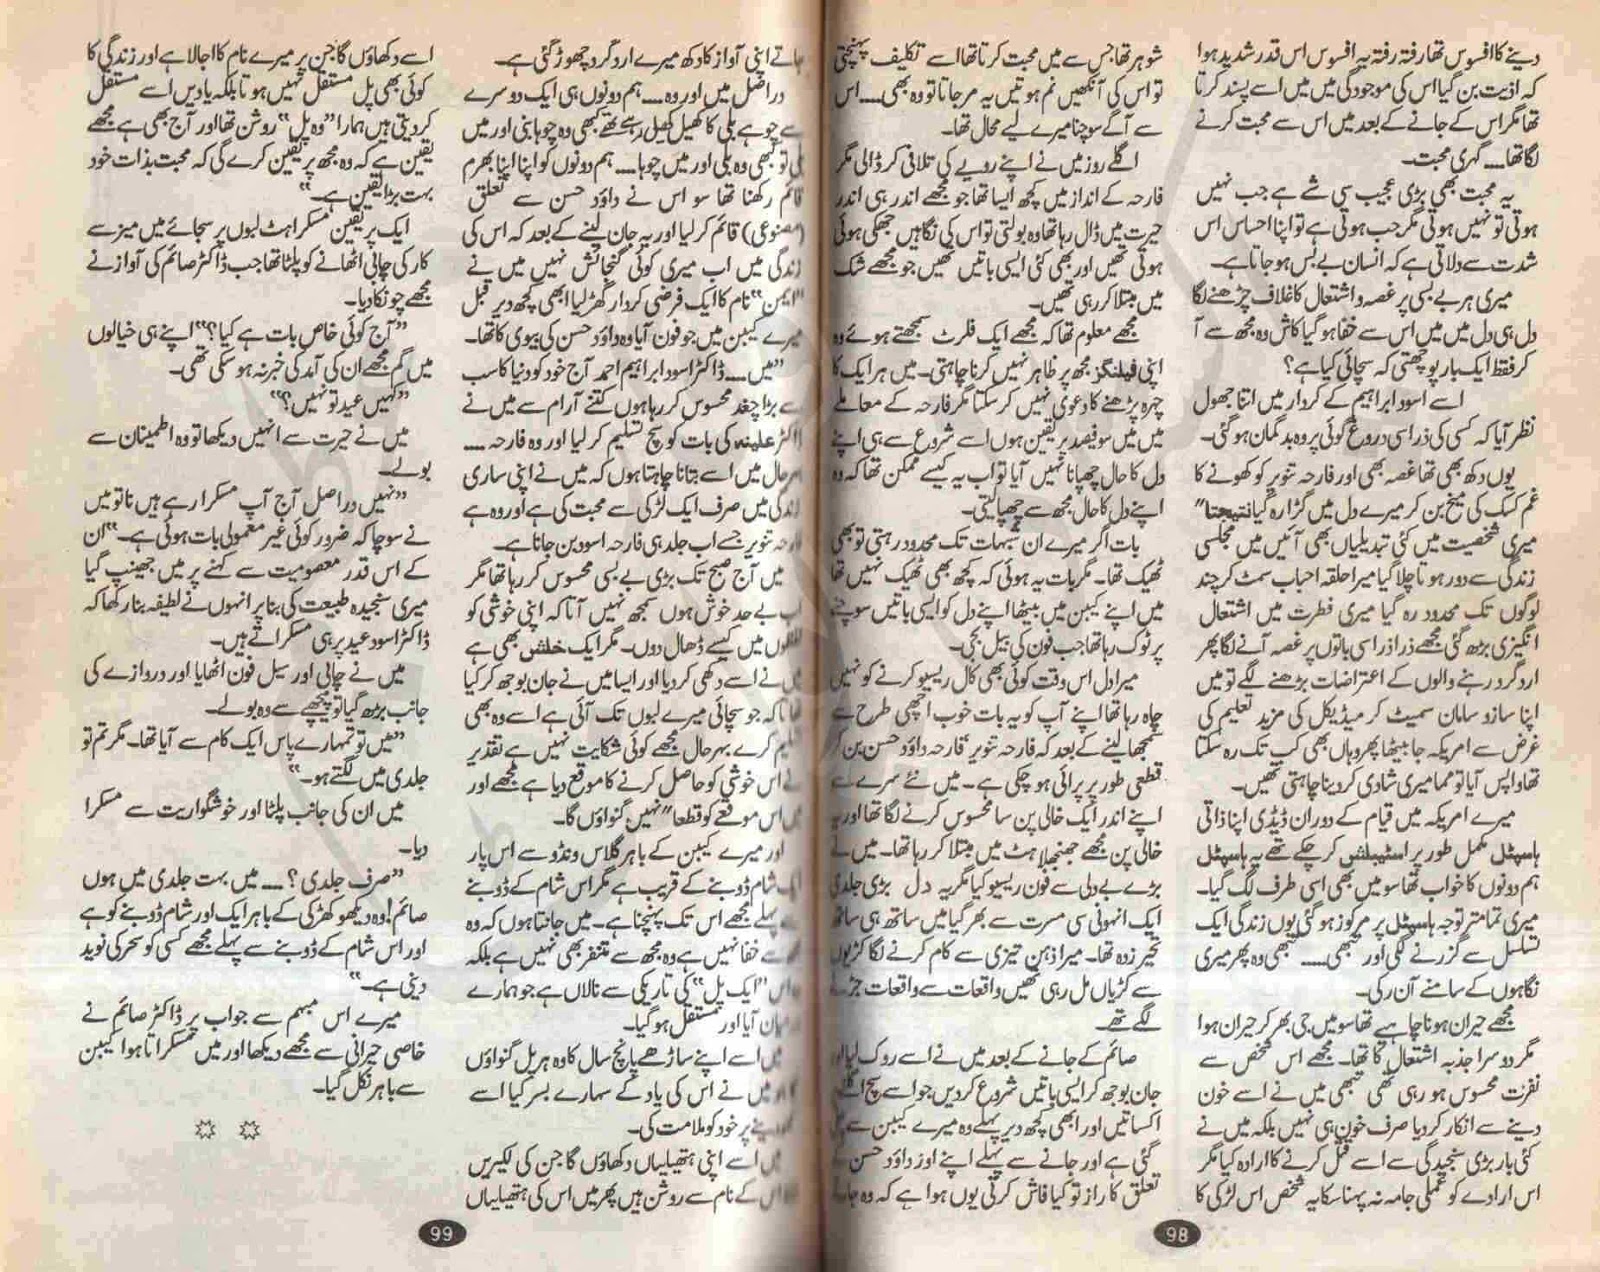 دینے کا افسوس تھا رفتہ رفتہ یہ افسوس اس قدر شدید ہوا
کہ اذیت بن گیا اس کی موجودگی میں میں اسے پسند کرتا
تھا مگر اس کے جانے کے بعد میں اس سے محبت کرنے
لگا تھا۔۔۔۔ گہری محبت۔
یہ محبت بھی بڑی عجیب سی شے ہے جب نہیں
ہوتی تو نہیں ہوتی مگر جب ہوتی ہے تو اپنا احساس اس
شدت سے دلاتی ہے کہ انسان بے بس ہو جاتا ہے۔
میری ہر بے بسی پر غصہ و اشتعال کا غلاف چڑھنے لگا
دل ہی دل میں میں اس سے خفا ہو گیا کاش وہ مجھ سے آ
کر فقط ایک بار پوچھتی کہ سچائی کیا ہے؟
اسے اسود ابراہیم کے کردار میں اتنا جھول
نظر آیا کہ کسی کی ذرا سی دروغ گوئی پر وہ بدگمان ہو گئی۔
یوں دکھ بھی تھا غصہ بھی اور فارحہ تنویر کو کھونے کا
غم کسک کی میخ بن کر میرے دل میں گڑا رہ گیا نتیجتا"
میری شخصیت میں کئی تبدیلیاں بھی آئیں میں مجلسی
زندگی سے دور ہوتا چلا گیا میرا حلقہ احباب سمٹ کر چند
لوگوں تک محدود رہ گیا میری فطرت میں اشتعال
انگیزی بڑھ گئی مجھے ذرا ذرا سی باتوں پر غصہ آنے لگا پھر
اردگرد رہنے والوں کے اعتراضات بڑھنے لگے تو میں
اپنا سازو سامان سمیٹ کر میڈیکل کی مزید تعلیم کی
غرض سے امریکہ جا بیٹھا پھر وہاں بھی کب تک رہ سکتا
تھا واپس آیا تو مما میری شادی کر دینا چاہتی تھیں۔
میرے امریکہ میں قیام کے دوران ڈیڈی اپنا ذاتی
ہاسپٹل مکمل طور پر اسٹیبلش کر چکے تھے یہ ہاسپٹل
ہم دونوں کا خواب تھا سو میں بھی اسی طرف لگ گیا۔
میری تمام تر توجہ ہاسپٹل پر مرکوز ہو گئی یوں زندگی ایک
تسلسل سے گزرنے لگی اور تبھی۔۔۔۔۔ تبھی وہ پھر میری
نگاہوں کے سامنے آن رکی۔
مجھے حیران ہونا چاہیے تھا سو میں جی بھر کر حیران ہوا
مگر دوسرا جذبہ اشتعال کا تھا۔ مجھے اس شخص سے
نفرت محسوس ہو رہی تھی تبھی میں نے اسے خون
دینے سے انکار کر دیا صرف خون ہی نہیں بلکہ میں نے
کئی بار بڑی سنجیدگی سے اسے قتل کرنے کا ارادہ کیا مگر
اس ارادے کو عملی جامہ نہ پہنا سکا یہ شخص اس لڑکی کا
شوہر تھا جس سے میں محبت کرتا تھا اسے تکلیف پہنچتی
تو اس کی آنکھیں نم ہوتیں یہ مر جاتا تو وہ بھی۔۔۔۔ اس
سے آگے سوچنا میرے لیے محال تھا۔
اگلے روز میں نے اپنے رویے کی تلافی کر ڈالی مگر
فارحہ کے انداز میں کچھ ایسا تھا جو مجھے اندر ہی اندر
حیرت میں ڈال رہا تھا وہ بولتی تو اس کی نگاہیں جھکی ہوئی
ہوتی تھیں اور بھی کئی ایسی باتیں تھیں جو مجھے شک
میں مبتلا کر رہی تھیں۔
مجھے معلوم تھا کہ مجھے ایک فلرٹ سمجھتے ہوئے وہ
اپنی فیلنگز مجھ پر ظاہر نہیں کرنا چاہتی۔ میں ہر ایک کا
چہرہ پڑھنے کا دعویٰ نہیں کر سکتا مگر فارحہ کے معاملے
میں میں سو فیصد پر یقین ہوں اسے شروع سے ہی اپنے
دل کا حال چھپانا نہیں آیا تو اب یہ کیسے ممکن تھا کہ وہ
اپنے دل کا حال مجھ سے چھپا لیتی۔
بات اگر میرے ان شبہات تک محدود رہتی تو بھی
ٹھیک تھا۔ مگر بات یہ ہوئی کہ کچھ بھی ٹھیک نہیں تھا
میں اپنے کیبن میں بیٹھا اپنے دل کو ایسی باتیں سوچنے
پر ٹوک رہا تھا جب فون کی بیل بجی۔
میرا دل اس وقت کوئی بھی کال ریسیو کرنے کو نہیں
چاہ رہا تھا اپنے آپ کو یہ بات خوب اچھی طرح سے
سمجھا لینے کے بعد کہ فارحہ تنویر' فارحہ داؤد حسن بن کر
قطعی طور پر پرائی ہو چکی ہے۔ میں نئے سرے سے
اپنے اندر ایک خالی پن سا محسوس کرنے لگا تھا اور یہ
خالی پن مجھے جھنجھلاہٹ میں مبتلا کر رہا تھا۔ میں نے
بڑے بے دلی سے فون ریسیو کیا مگر یہ دل بڑی جلدی
ایک انہونی سی مسرت سے بھر گیا میں ساتھ ہی ساتھ
تحیر زدہ تھا۔ میرا ذہن تیزی سے کام کرنے لگا کڑیوں
سے کڑیاں مل رہی تھیں واقعات سے واقعات جڑنے
لگے تھے۔
صائم کے جانے کے بعد میں نے اسے روک لیا اور
جان بوجھ کر ایسی باتیں شروع کر دیں جو اسے سچ اگلنے
اکساتیں اور ابھی کچھ دیر پہلے وہ میرے کیبن سے
گئی ہے اور جانے سے پہلے اپنے اور داؤد حسن کے
تعلق کا راز تو کیا فاش کرتی یوں ہوا ہے کہ وہ جاتے
98
جاتے اپنی آواز کا دکھ میرے اردگرد چھوڑ گئی ہے۔
دراصل میں اور وہ۔۔۔۔ ہم دونوں ہی ایک دوسرے
سے چوہے بلی کا کھیل کھیل رہے تھے کبھی وہ چوہا بنی اور میں
بلی تو کبھی وہ بلی اور میں چوہا۔۔۔۔ ہم دونوں کو اپنا اپنا بھرم
قائم رکھنا تھا سو اس نے داؤد حسن سے تعلق
(مصنوعی) قائم کر لیا اور یہ جان لینے کے بعد کہ اس کی
زندگی میں اب میری کوئی گنجائش نہیں میں نے
"ایمن" نام کا ایک فرضی کردار گھڑ لیا ابھی کچھ دیر قبل
میرے کیبن میں جو فون آیا وہ داؤد حسن کی بیوی کا تھا۔
"میں۔۔۔۔ ڈاکٹر اسود ابراہیم احمد آج خود کو دنیا کا سب
سے بڑا چغد محسوس کر رہا ہوں کتنے آرام سے میں نے
ڈاکٹر علینہ کی بات کو سچ تسلیم کر لیا اور وہ فارحہ۔۔۔۔
بہرحال میں اسے بتانا چاہتا ہوں کہ میں نے اپنی ساری
زندگی میں صرف ایک لڑکی سے محبت کی ہے اور وہ ہے
فارحہ تنویر جسے اب جلد ہی فارحہ اسود بن جانا ہے۔
میں آج صبح تک بڑی بے بسی محسوس کر رہا تھا مگر
اب بے حد خوش ہوں سمجھ نہیں آتا کہ اپنی خوشی کو
لفظوں میں کیسے ڈھال دوں۔ مگر ایک خلش بھی ہے
میں نے اسے دکھی کر دیا اور ایسا میں نے جان بوجھ کر کیا
تھا تاکہ جو سچائی میرے لبوں تک آئی ہے اسے وہ بھی
تسلیم کرے بہرحال مجھے کوئی شکایت نہیں ہے تقدیر
نے اس خوشی کو حاصل کرنے کا موقع دیا ہے مجھے اور
میں اس موقعے کو قطعا" نہیں گنواؤں گا۔
اور میرے کیبن کے باہر گلاس ونڈو سے اس پار
ایک شام ڈوبنے کے قریب ہے مگر اس شام کے ڈوبنے
سے پہلے مجھے اس تک پہنچنا ہے۔ میں جانتا ہوں کہ وہ
مجھ سے خفا نہیں ہے وہ مجھ سے متنفر بھی نہیں ہے بلکہ
وہ اس "ایک پل" کی تاریکی سے نالاں ہے جو ہمارے
درمیان آیا اور مستقل ہو گیا۔
میں اسے اپنے ساڑھے پانچ سال کا وہ ہر پل گنواؤں
گا جو میں نے اس کی یاد کے سہارے بسر کیا اسے
کھو دینے پر خود کو ملامت کی۔
میں اسے اپنی ہتھیلیاں دکھاؤں گا جن کی لکیریں
اس کے نام سے روشن ہیں پھر میں اس کی ہتھیلیاں
اسے دکھاؤں گا جن پر میرے نام کا اجالا ہے اور زندگی کا
کوئی بھی پل مستقل نہیں ہوتا بلکہ یادیں اسے مستقل
کر دیتی ہیں ہمارا "وہ پل" روشن تھا اور آج بھی ہے مجھے
یقین ہے کہ وہ مجھ پر یقین کرے گی کہ محبت بذات خود
بہت بڑا یقین ہے۔"
ایک پر یقین مسکراہٹ لبوں پر سجائے میں میز سے
کار کی چابی اٹھانے کو پلٹا تھا جب ڈاکٹر صائم کی آواز نے
مجھے چونکا دیا۔
"آج کوئی خاص بات ہے کیا؟" اپنے ہی خیالوں
میں گم مجھے ان کی آمد کی خبر نہ ہو سکی تھی۔
"کہیں عید تو نہیں؟"
میں نے حیرت سے انہیں دیکھا تو وہ اطمینان سے
بولے۔
"نہیں دراصل آج آپ مسکرا رہے ہیں نا تو میں
نے سوچا کہ ضرور کوئی غیر معمولی بات ہوئی ہے۔" ان
کے اس قدر معصومیت سے کہنے پر میں جھینپ گیا
میری سنجیدہ طبیعت کی بنا پر انہوں نے لطیفہ بنا رکھا کہ
ڈاکٹر اسود عید پر ہی مسکراتے ہیں۔
میں نے چابی اور سیل فون اٹھایا اور دروازے کی
جانب بڑھ گیا تو پیچھے سے وہ بولے۔
"میں تو تمہارے پاس ایک کام سے آیا تھا۔ مگر تم تو
جلدی میں لگتے ہو۔"
میں ان کی جانب پلٹا اور خوشگواریت سے مسکرا
دیا۔
"صرف جلدی؟۔۔۔۔ میں بہت جلدی میں ہوں
صائم! وہ دیکھو کھڑکی کے باہر ایک اور شام ڈوبنے کو ہے
اور اس شام کے ڈوبنے سے پہلے مجھے کسی کو سحر کی نوید
دینی ہے۔"
میرے اس مبہم سے جواب پر ڈاکٹر صائم نے
خاصی حیرانی سے مجھے دیکھا اور میں مسکراتا ہوا کیبن
سے باہر نکل گیا۔
99